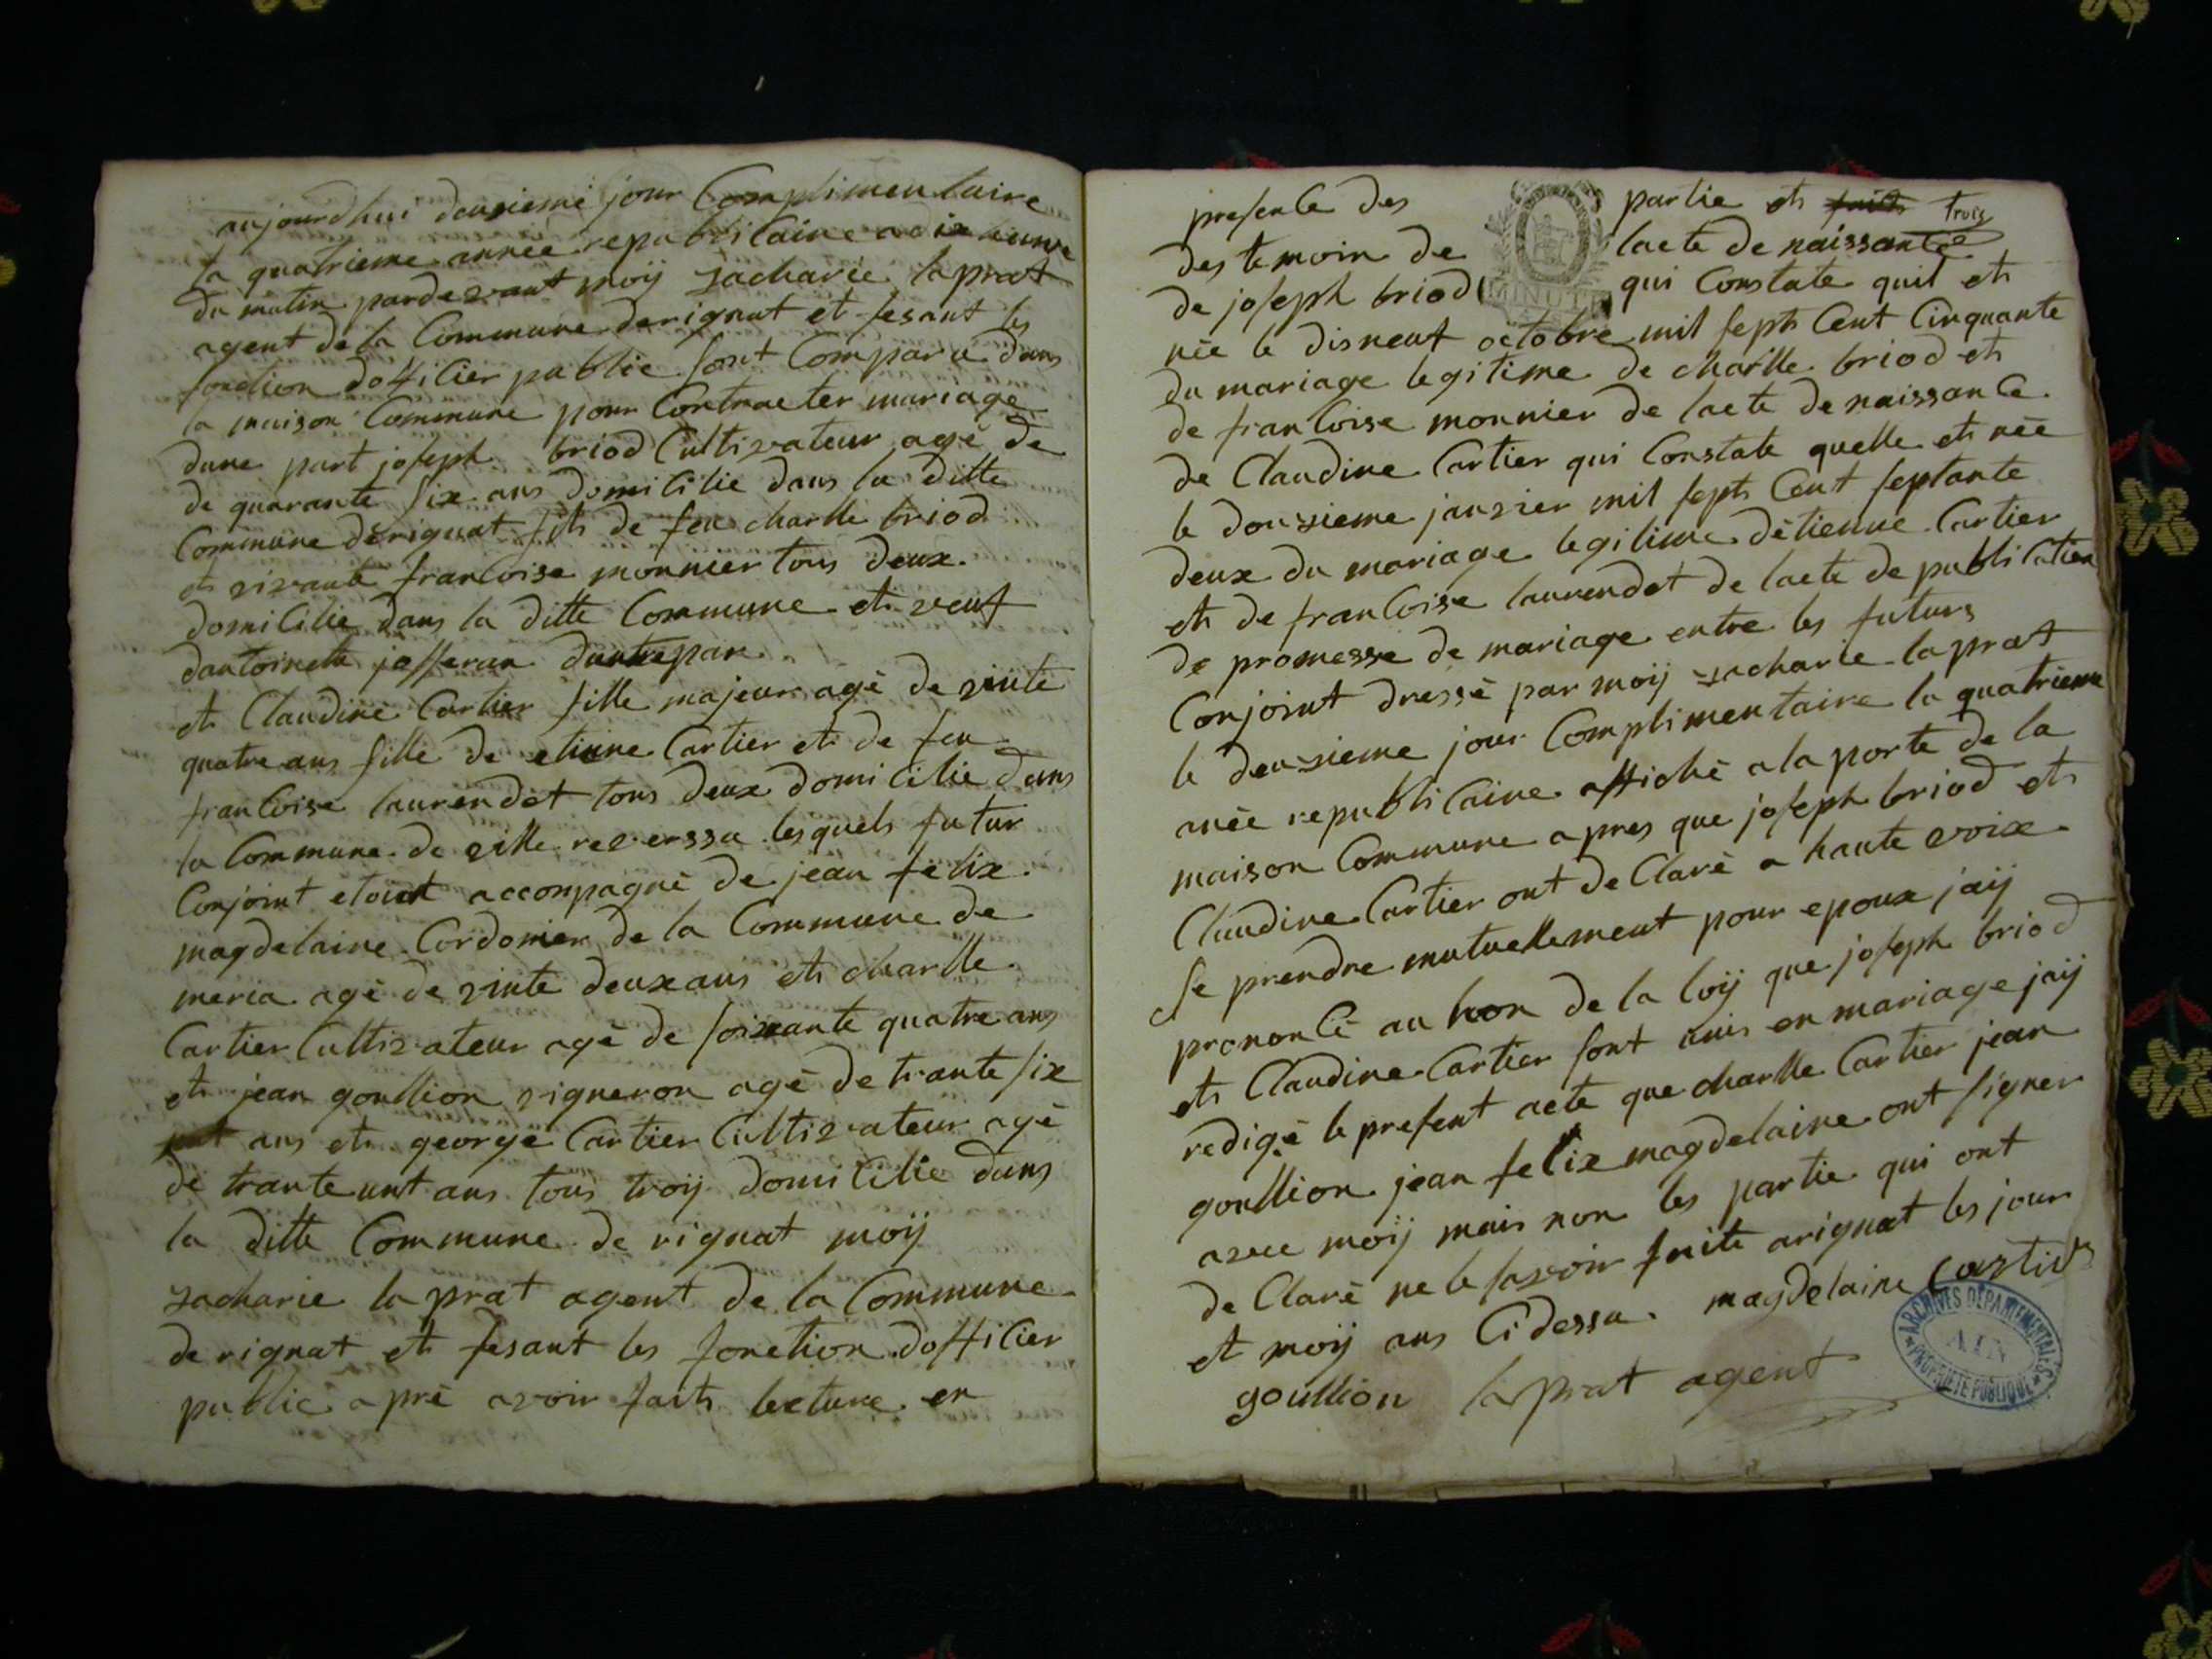 aujourdhui deuxieme jour Complimentaire
la quatrieme année republiCaine a dix heure
du matin pardevant moÿ zacharie laprat
agent de la Commune derignat et fesant les
fonction dofficier public sont Comparu dans
la maison Commune pour Contracter mariage
dune part joseph briod Cultivateur agé de
de quarante six ans domiCilié dans la ditte
Commune derignat fils de feu charlle briod
et vivante franCoise monnier tous deux
domiCilié dans la ditte Commune et veuf
dantoinette josseran dautrepar
et Claudine Cartier fille majeur agé de vinte
quatre ans fille de etienne Cartier et de feu
franCoise laurendet tous deux domiCilié dans
la Commune de ville reverssu lesquels futur
Conjoint etoient accompagné de jean félix
magdelaine Cordonier de la Commune de
meria agé de vinte deux ans et charlle
Cartier Cultivateur agé de soixante quatre ans
et jean goullion vigneron agé de trante six
ans et george Cartier Cultivateur agé
de trante unt ans tous troÿ domiCilié dans
la ditte Commune de rignat moÿ
zacharie laprat agent de la Commune
de rignat et fesant les fonction dofficier
public apré avoir faits lecture en
presenCe des partie et troiz
des temoin de lacte de naissanCe
de joseph briod qui Constate quil et
MINUTE
née le disneuf octobre mil sept Cent Cinquante
du mariage legitime de charlle briod et
de franCoise monnier de lacte de naissanCe
de Claudine Cartier qui Constate quelle et née
le douzieme janvier mil sept Cent septante
deux du mariage legitime détienne Cartier
et de franCoise laurendet de lacte de publiCation
de promesse de mariage entre les futurs
Conjoint dressé par moÿ zacharie laprat
le deuxieme jour Complimentaire la quatrieme
anée republiCaine affiché a la porte de la
maison Commune apres que joseph briod et
Claudine Cartier ont deClaré a haute voix
se prendre mutuellement pour epoux jaÿ
prononCé au non de la loÿ que joseph briod
et Claudine Cartier sont unis en mariage jaÿ
redigé le present acte que charlle Cartier jean
goullion jean felix magdelaine ont signer
avec moÿ mais non les partie qui ont
deClaré ne le savoir faite arignat les jour
et moÿ ans Cidessu magdelaine Cartier
goullion laprat agent
ARCHIVES DEPARTEMENTALES
AIN
PROPRIETE PUBLIQUE